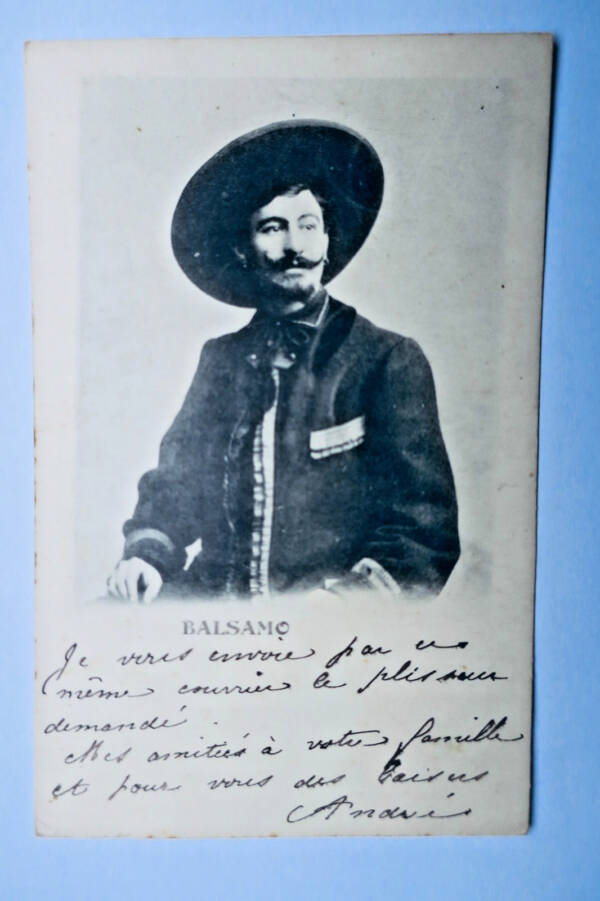 BALSAMO
Je vous envoie par ce
même courrier le plisseur
demandé.
Mes amitiés à votre famille
et pour vous des baisers
André